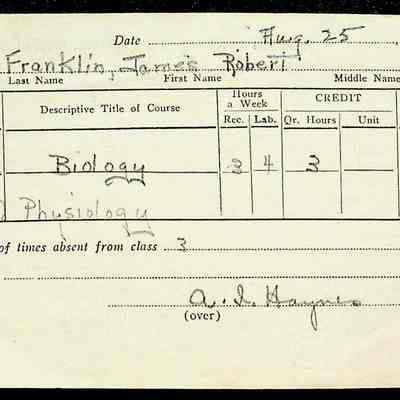 Date Aug. 25,
Franklin, James Robert
Last Name First Name Middle Name
Descriptive Title of Course Hours a Week CREDIT
Rec. Lab. Qr. Hours Unit
Biology 3 4 3
Physiology
of times absent from class 3
A. I. Haynes
(over)